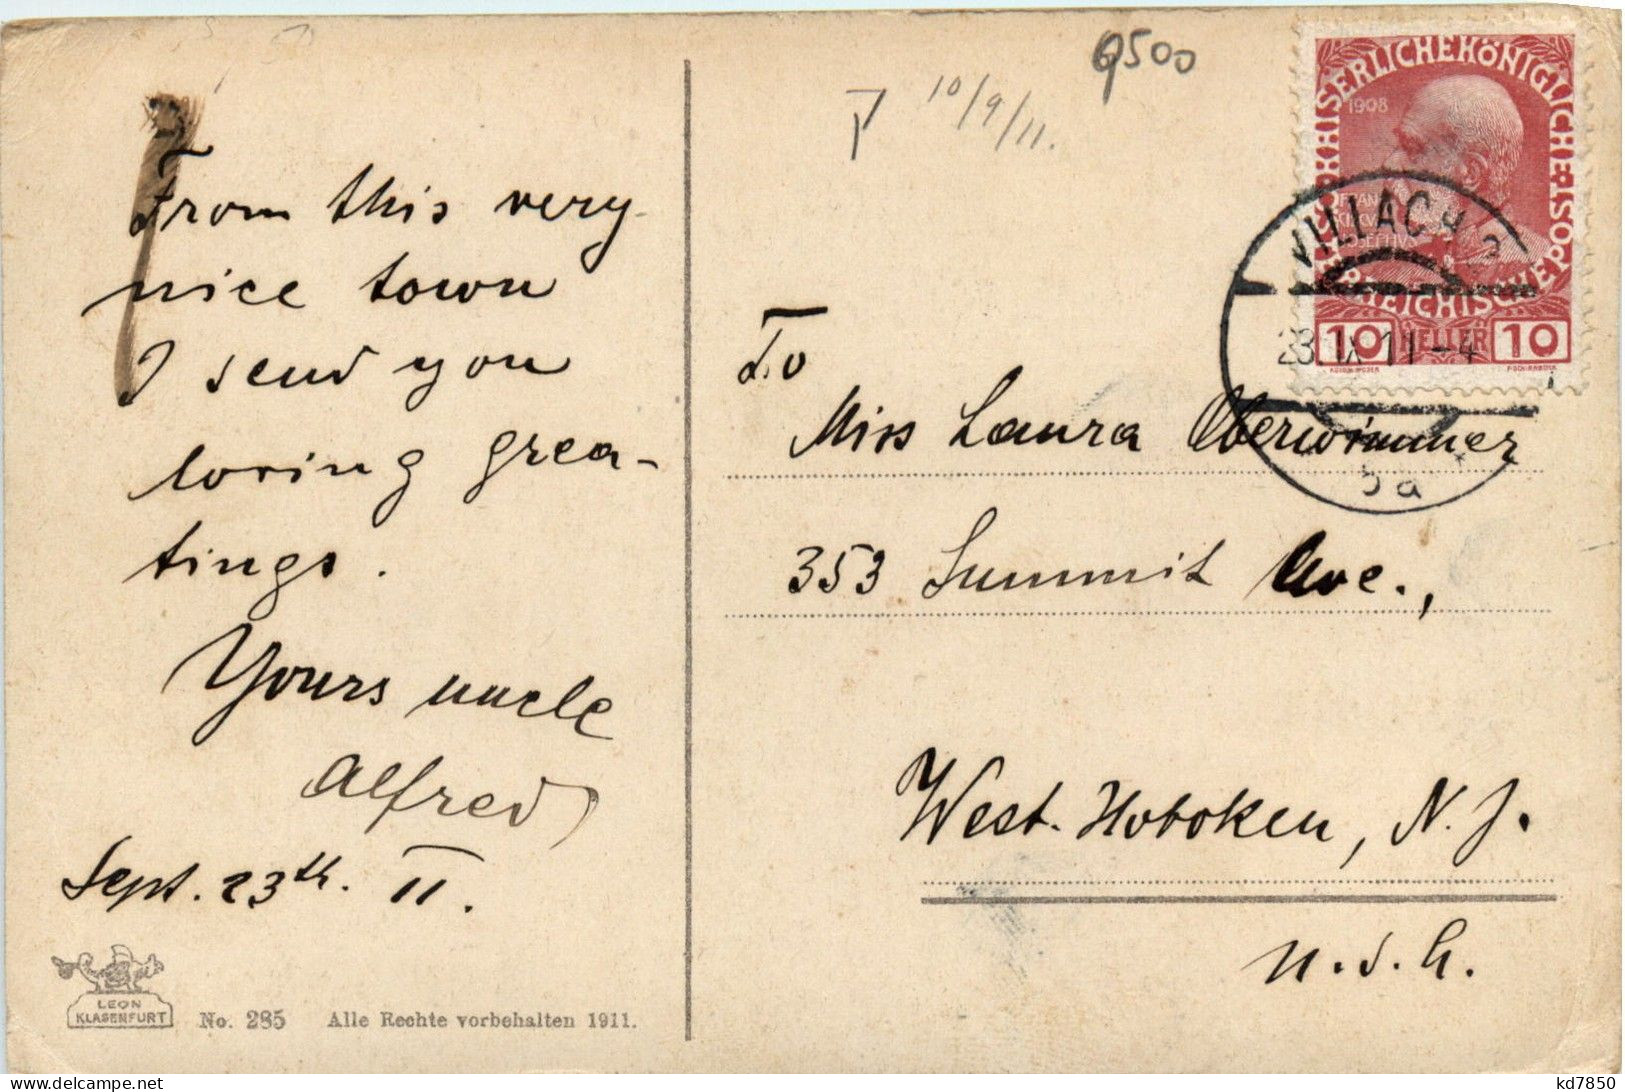 From this very
nice town
I send you
loving grea-
tings.
Yours uncle
Alfred
Sept. 23th. 11.
LEON
KLAGENFURT
No. 285 Alle Rechte vorbehalten 1911.
10/9/11.
KAISERLICHEKÖNIGLICHE
ÖSTERREICHISCHE POST
1908
10 HELLER 10
VILLACH 2
23 IX 11-4
To
Miss Laura Oberwimmer
353 Summit Ave.,
West. Hoboken, N. J.
U.S.A.
kd7850